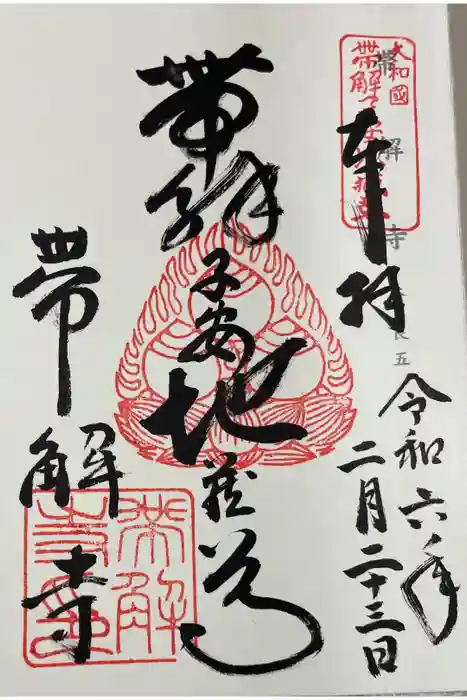 奉拝
令和六年
二月二十三日
帯解子安地蔵尊
帯解寺
大和國
帯解
帯解寺